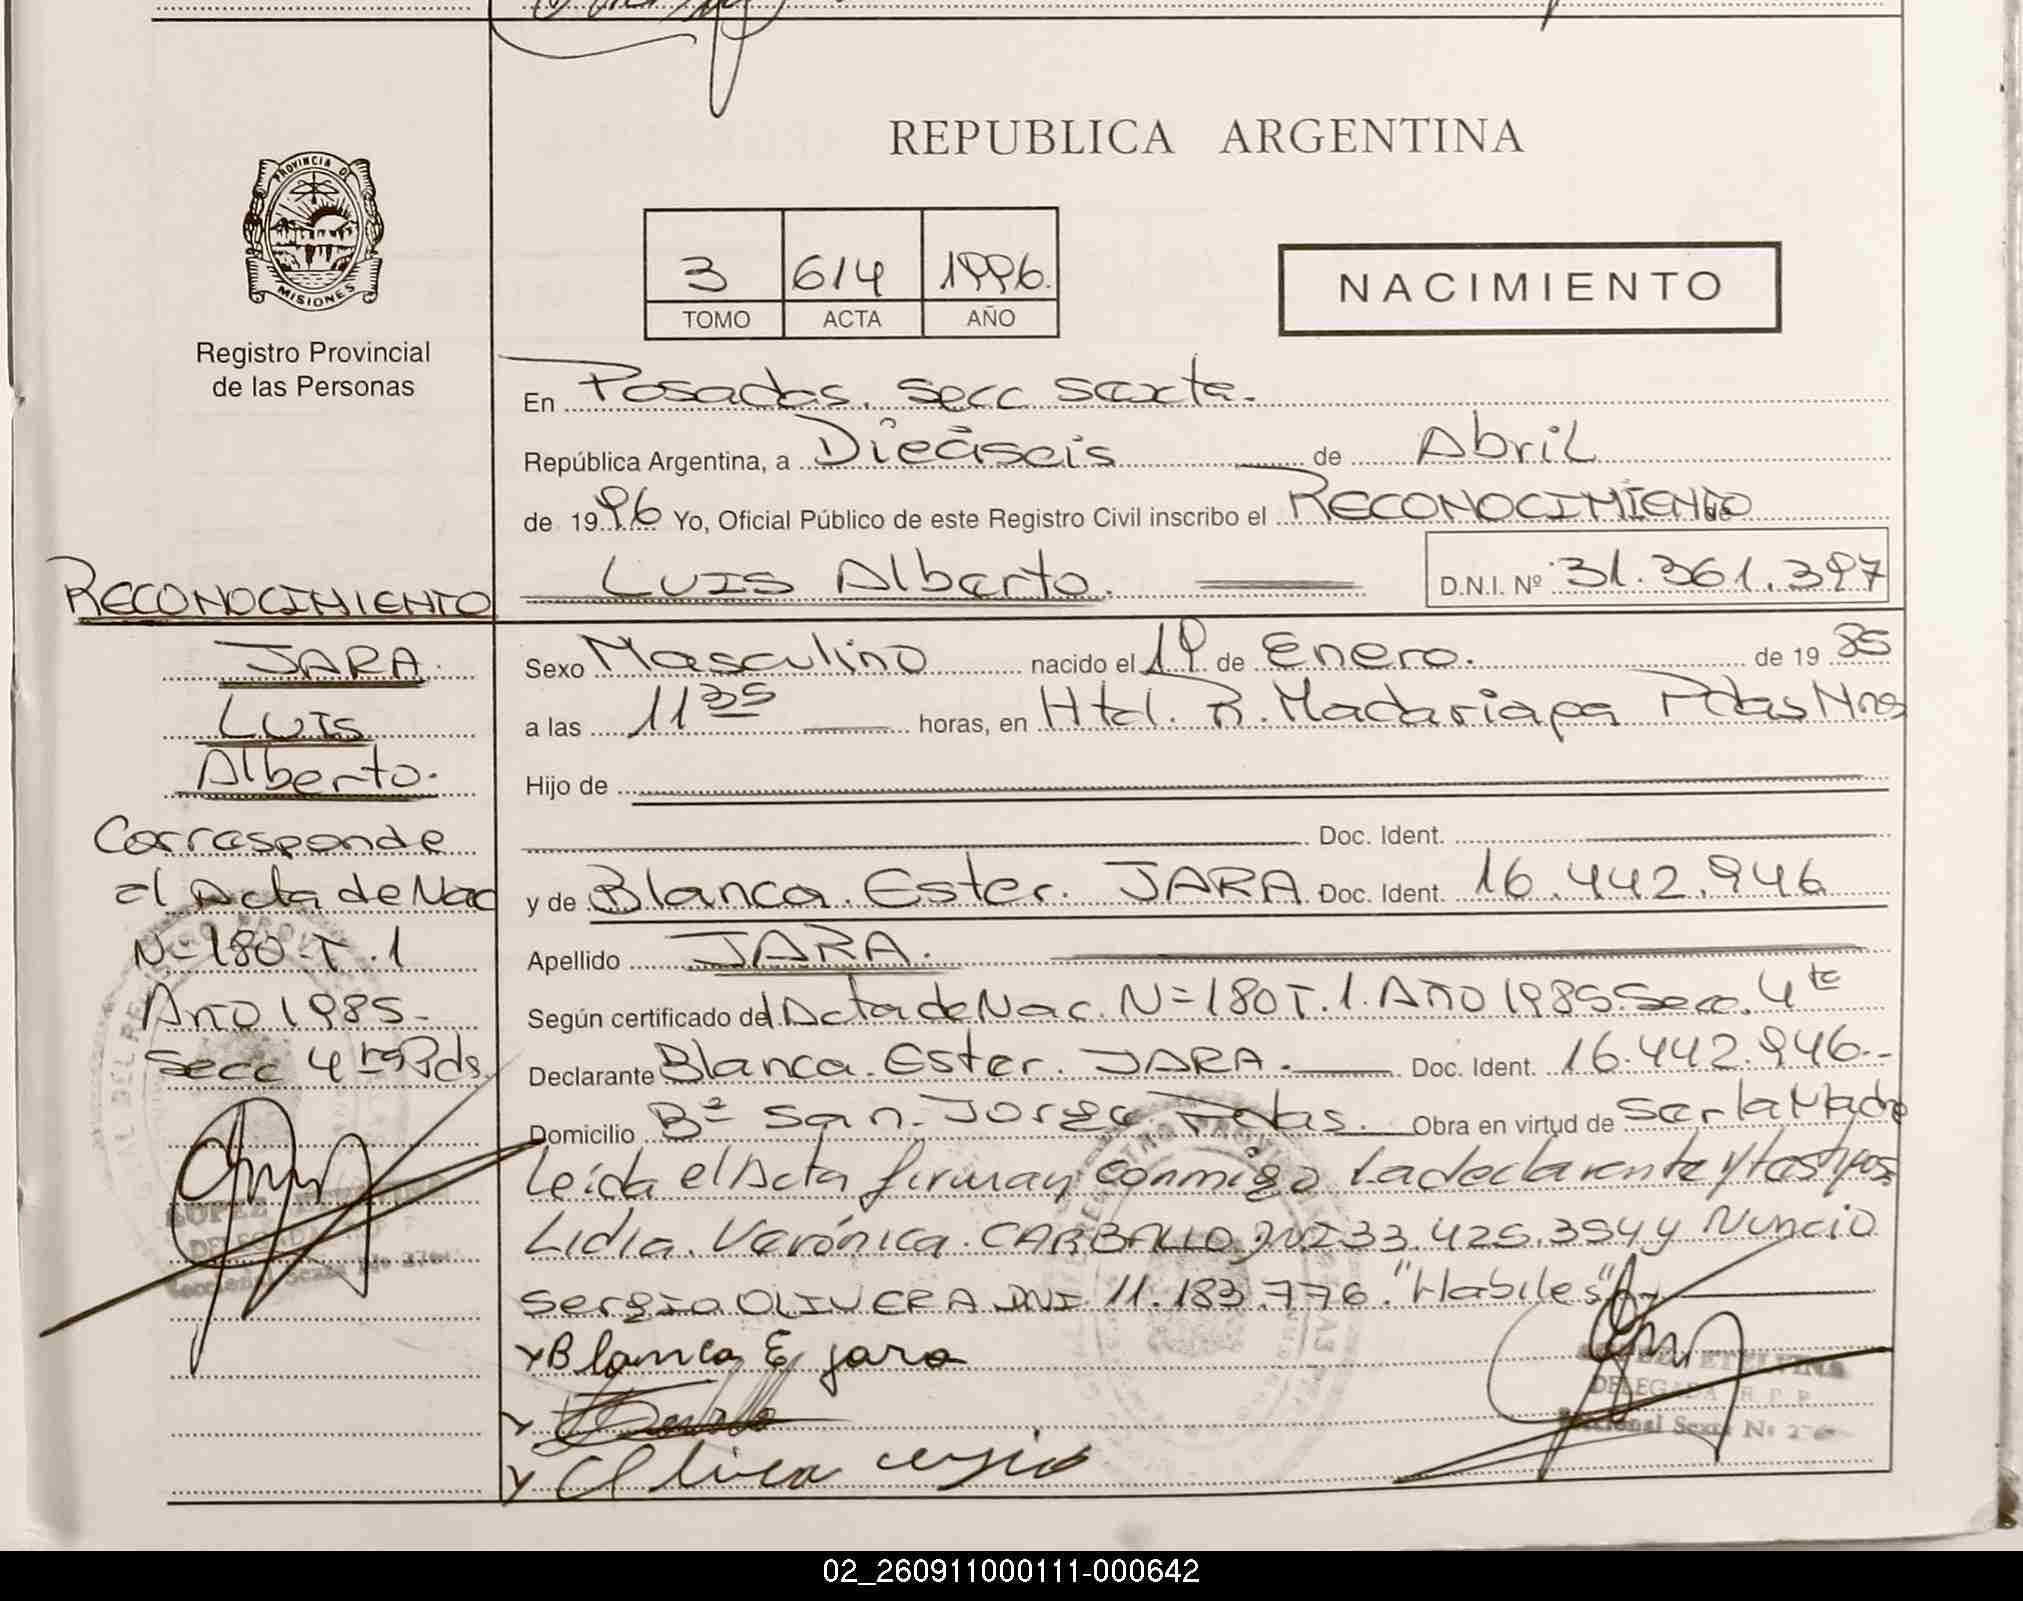 REPUBLICA ARGENTINA
PROVINCIA DE
MISIONES
Registro Provincial
de las Personas
3 614 1996.
TOMO ACTA AÑO
NACIMIENTO
En Posadas. Secc Sexta.
República Argentina, a Dieciseis de Abril
de 1996 Yo, Oficial Público de este Registro Civil inscribo el RECONOCIMIENTO de
LUIS Alberto. D.N.I. Nº 31.361.397
RECONOCIMIENTO
JARA.
LUIS
Alberto.
Corresponde
al Acta de Nac
N=180-T.1
Año 1985-
Secc 4ta Pds.
Sexo Masculino nacido el 19 de Enero. de 1985
a las 11 35 horas, en Htal. R. Madariaga Pdas Mnes
Hijo de
Doc. Ident.
y de Blanca. Ester. JARA. Doc. Ident. 16.442.946
Apellido JARA.
Según certificado del Acta de Nac. N=180 T.1. Año 1985 Secc. 4ta
Declarante Blanca. Ester. JARA. Doc. Ident. 16.442.946.-
Domicilio Bº San. Jorge Pdas. Obra en virtud de ser la Madre
Leída el Acta firman conmigo la declarante y testigos.
Lidia. Verónica. CARBALLO DNI 33.425.354 y Nuncio
Sergio OLIVERA DNI. 11.183.776. "Habiles"
Blanca E jara
DELEGADA R. P. P.
Seccional Sexta Nº
02_260911000111-000642